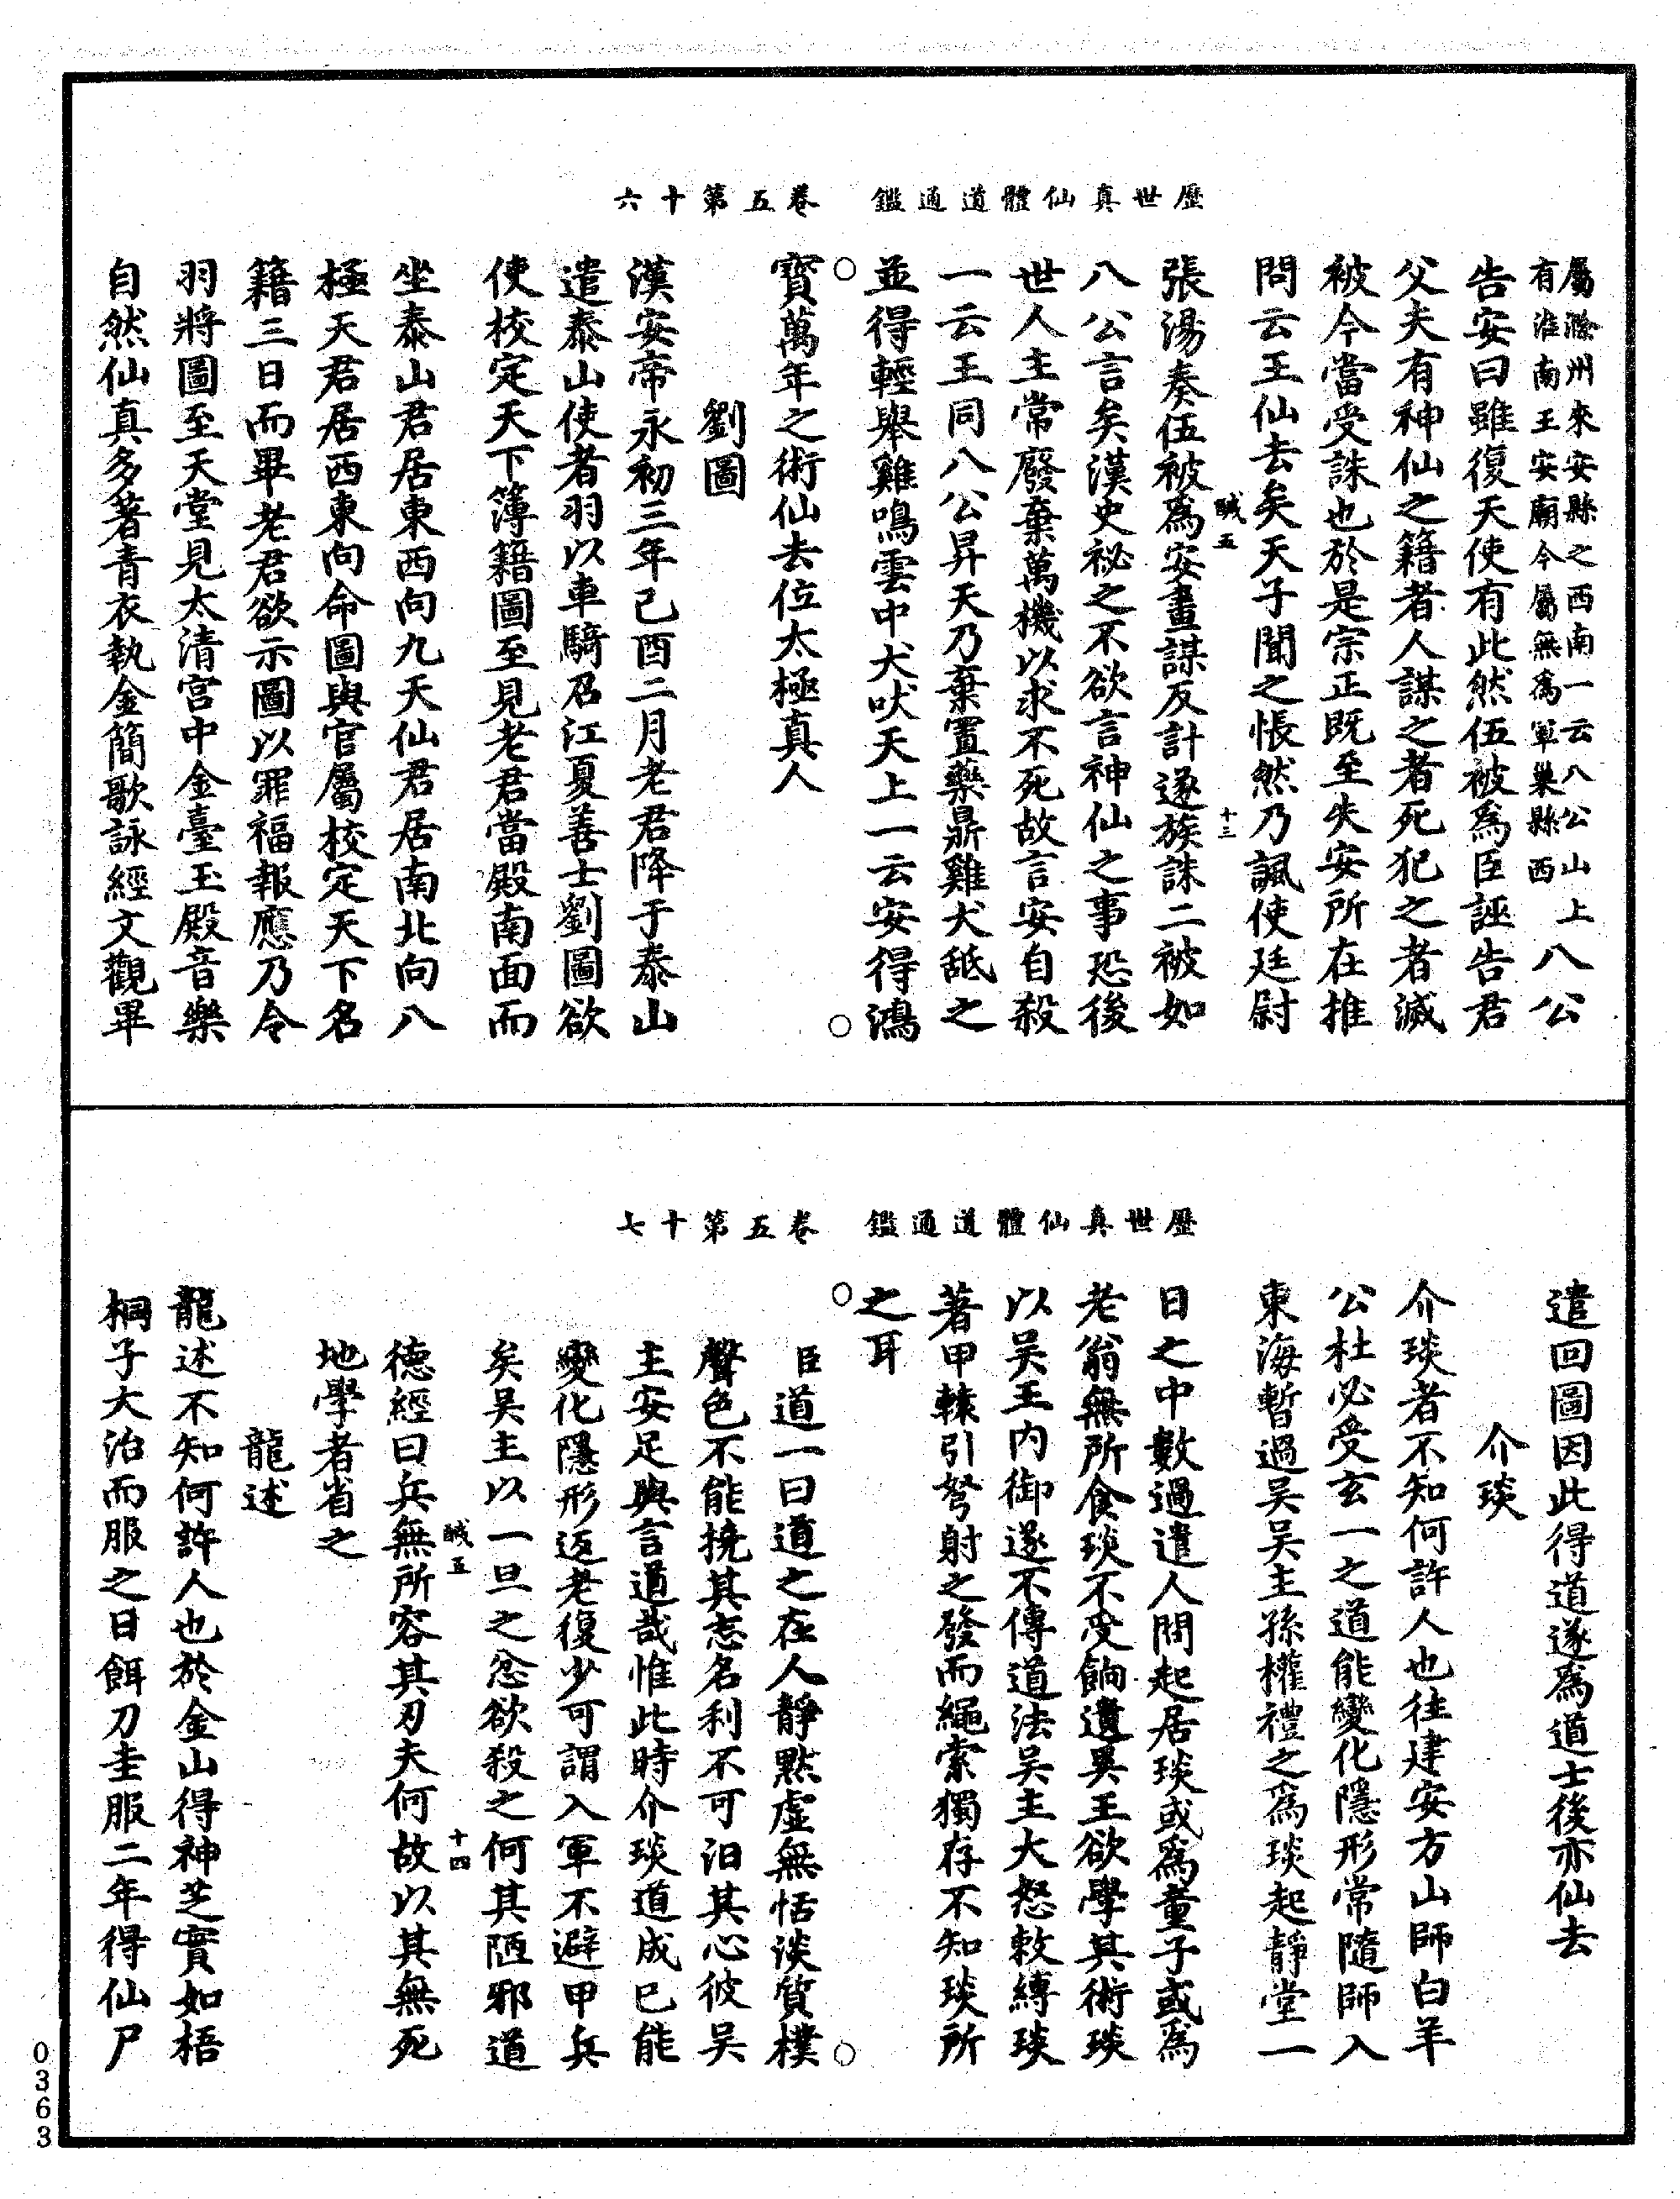 歷世真仙體道通鑑　卷五第十六
屬滁州來安縣之西南一云八公山上
有淮南王安廟今屬無為軍巢縣西
八公
告安曰雖復天使有此然伍被爲臣誣告君
父夫有神仙之籍者人謀之者死犯之者滅
被今當受誅也於是宗正既至失安所在推
問云王仙去矣天子聞之悵然乃諷使廷尉
醎五　十三
張湯奏伍被爲安畫謀反計遂族誅二被如
八公言矣漢史祕之不欲言神仙之事恐後
世人主常廢棄萬機以求不死故言安自殺
一云王同八公昇天乃棄置藥鼎雞犬舐之
並得輕舉雞鳴雲中犬吠天上一云安得鴻
寶萬年之術仙去位太極真人
劉圖
漢安帝永初三年己酉二月老君降于泰山
遣泰山使者羽以車騎召江夏善士劉圖欲
使校定天下簿籍圖至見老君當殿南面而
坐泰山君居東西向九天仙君居南北向八
極天君居西東向命圖與官屬校定天下名
籍三日而畢老君欲示圖以罪福報應乃令
羽將圖至天堂見太清宮中金臺玉殿音樂
自然仙真多著青衣執金簡歌詠經文觀畢
歷世真仙體道通鑑　卷五第十七
遣回圖因此得道遂爲道士後亦仙去
介琰
介琰者不知何許人也往建安方山師白羊
公杜必受玄一之道能變化隱形常隨師入
東海暫過吳吳主孫權禮之爲琰起靜堂一
日之中數過遣人問起居琰或爲童子或爲
老翁無所食琰不受餉遺異王欲學其術琰
以吳王內御遂不傳道法吳主大怒敕縛琰
著甲轅引弩射之發而繩索獨存不知琰所
之耳
臣道一曰道之在人靜默虛無恬淡質樸
聲色不能撓其志名利不可汩其心彼吳
主安足與言道哉惟此時介琰道成已能
變化隱形返老復少可謂入軍不避甲兵
矣吳主以一旦之忿欲殺之何其陋邪道
醎五　十四
德經曰兵無所容其刃夫何故以其無死
地學者省之
龍述
龍述不知何許人也於金山得神芝實如梧
桐子大治而服之日餌刀圭服二年得仙尸
0363